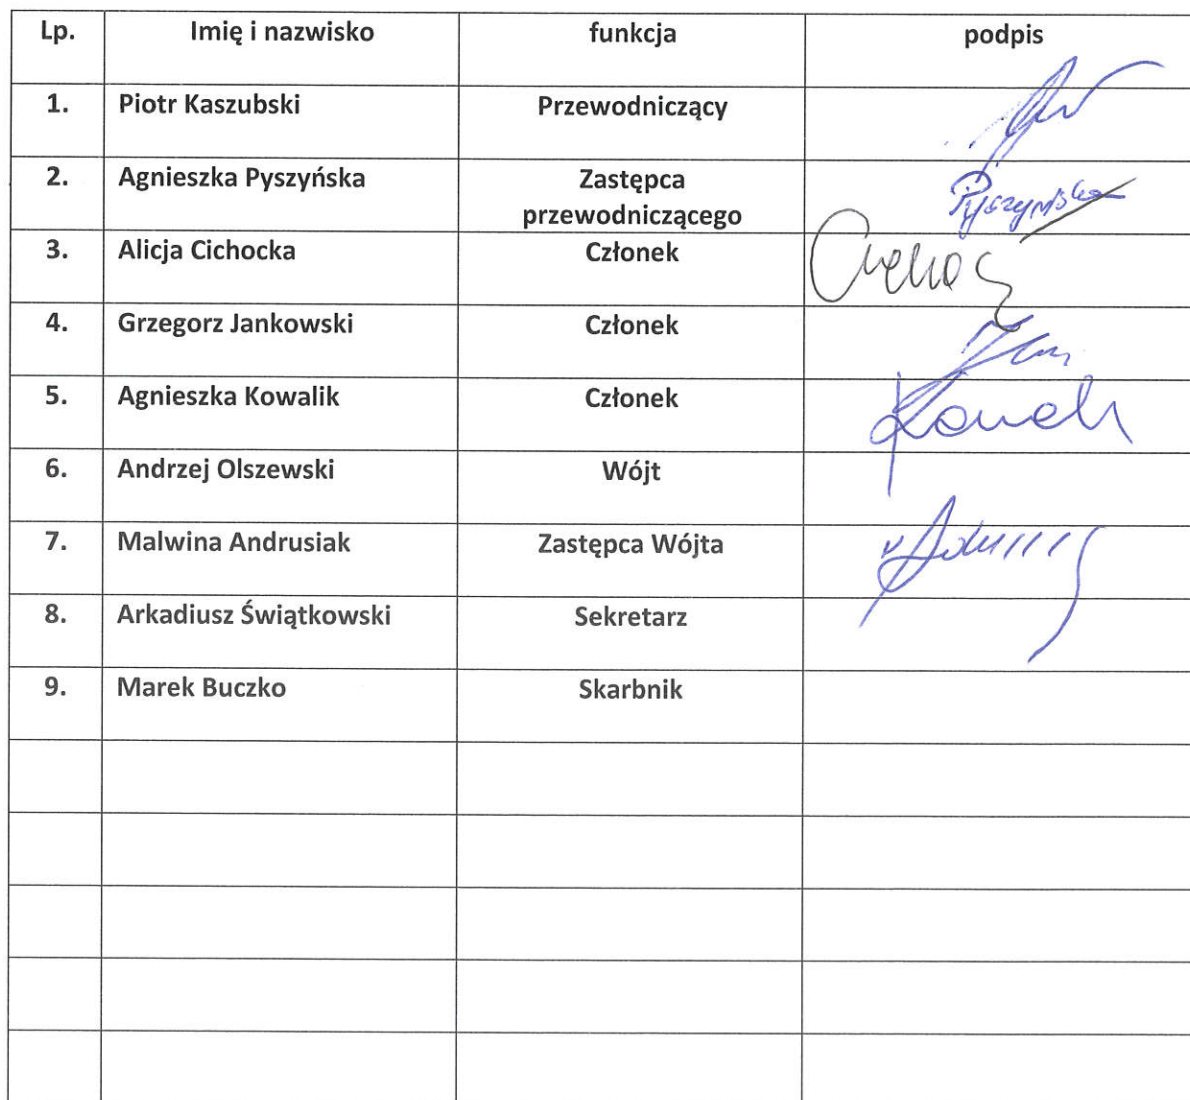 Lp. Imię i nazwisko funkcja podpis
1. Piotr Kaszubski Przewodniczący
2. Agnieszka Pyszyńska Zastępca przewodniczącego Pyszyńska
3. Alicja Cichocka Członek
4. Grzegorz Jankowski Członek
5. Agnieszka Kowalik Członek
6. Andrzej Olszewski Wójt
7. Malwina Andrusiak Zastępca Wójta
8. Arkadiusz Świątkowski Sekretarz
9. Marek Buczko Skarbnik